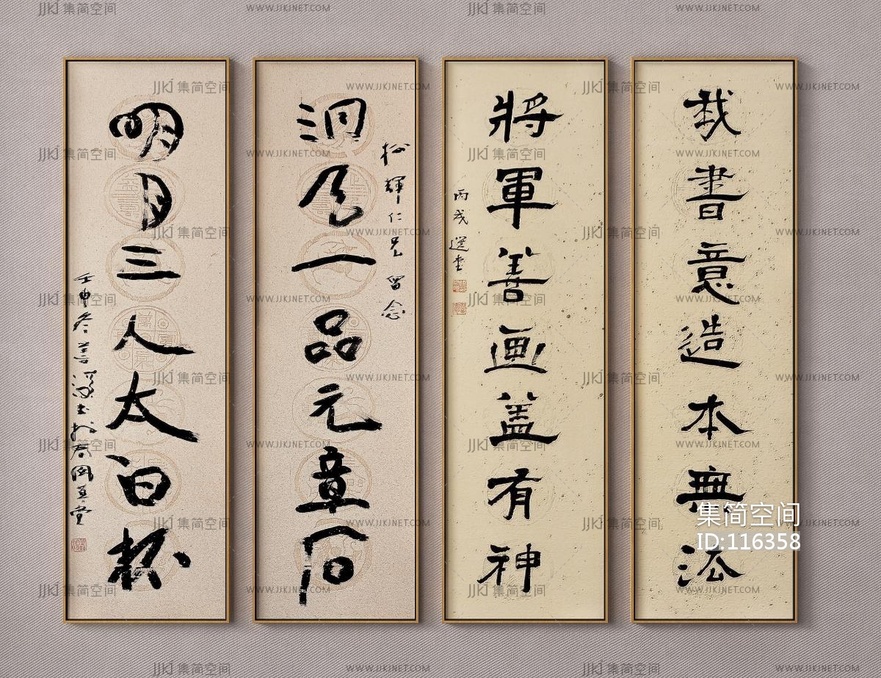 我書意造本無法
將軍善画盖有神
丙戌 選堂
洞天一品元章石
輝仁兄留念
明月三人太白杯
壬申冬善深書於
集简空间
ID:116358
集简空间
WWW.JJKINET.COM